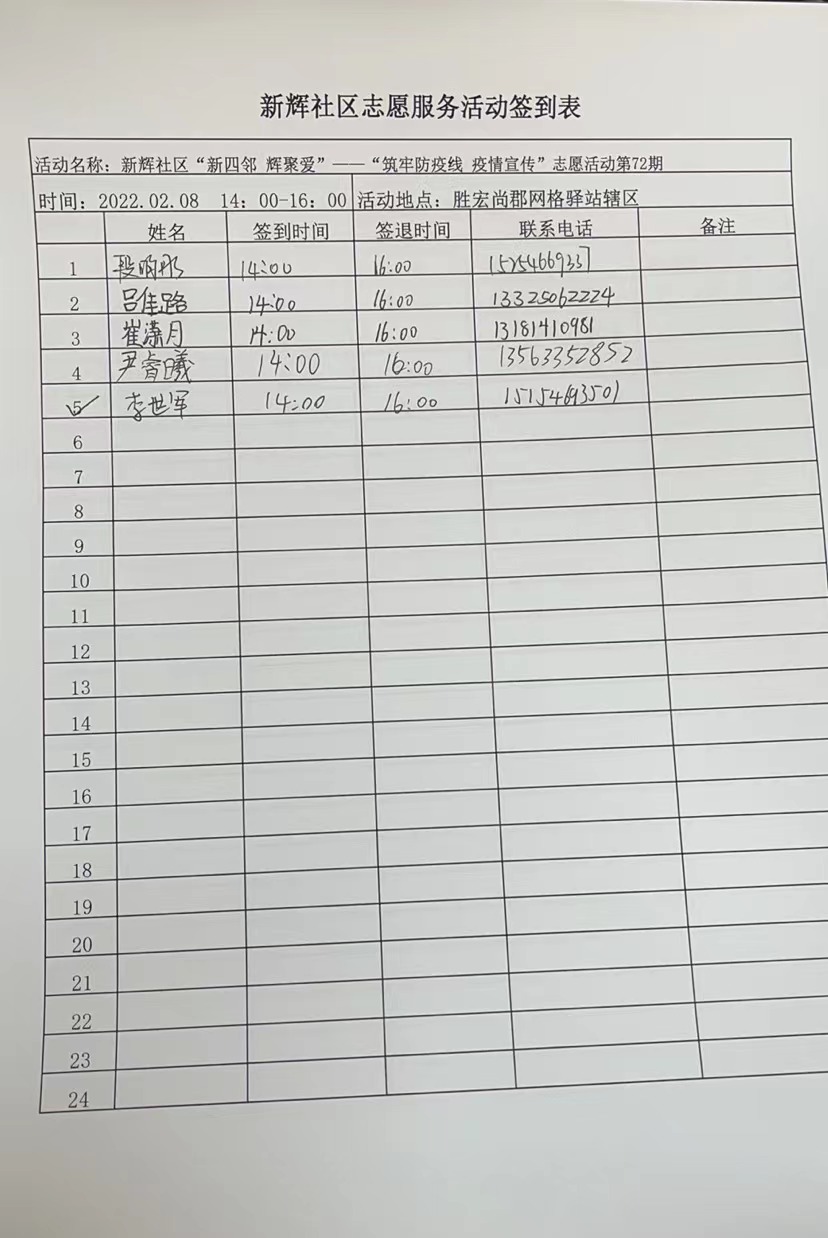 新辉社区志愿服务活动签到表
活动名称：新辉社区“新四邻 辉聚爱”——“筑牢防疫线 疫情宣传”志愿活动第72期
时间：2022.02.08 14：00-16：00 活动地点：胜宏尚郡网格驿站辖区
姓名 签到时间 签退时间 联系电话 备注
1 14:00 16:00 15254669337
2 吕佳路 14:00 16:00 13325062224
3 崔潇月 14:00 16:00 13181410981
4 尹睿曦 14:00 16:00 13563352852
5 李世军 14:00 16:00 15154693501
6
7
8
9
10
11
12
13
14
15
16
17
18
19
20
21
22
23
24